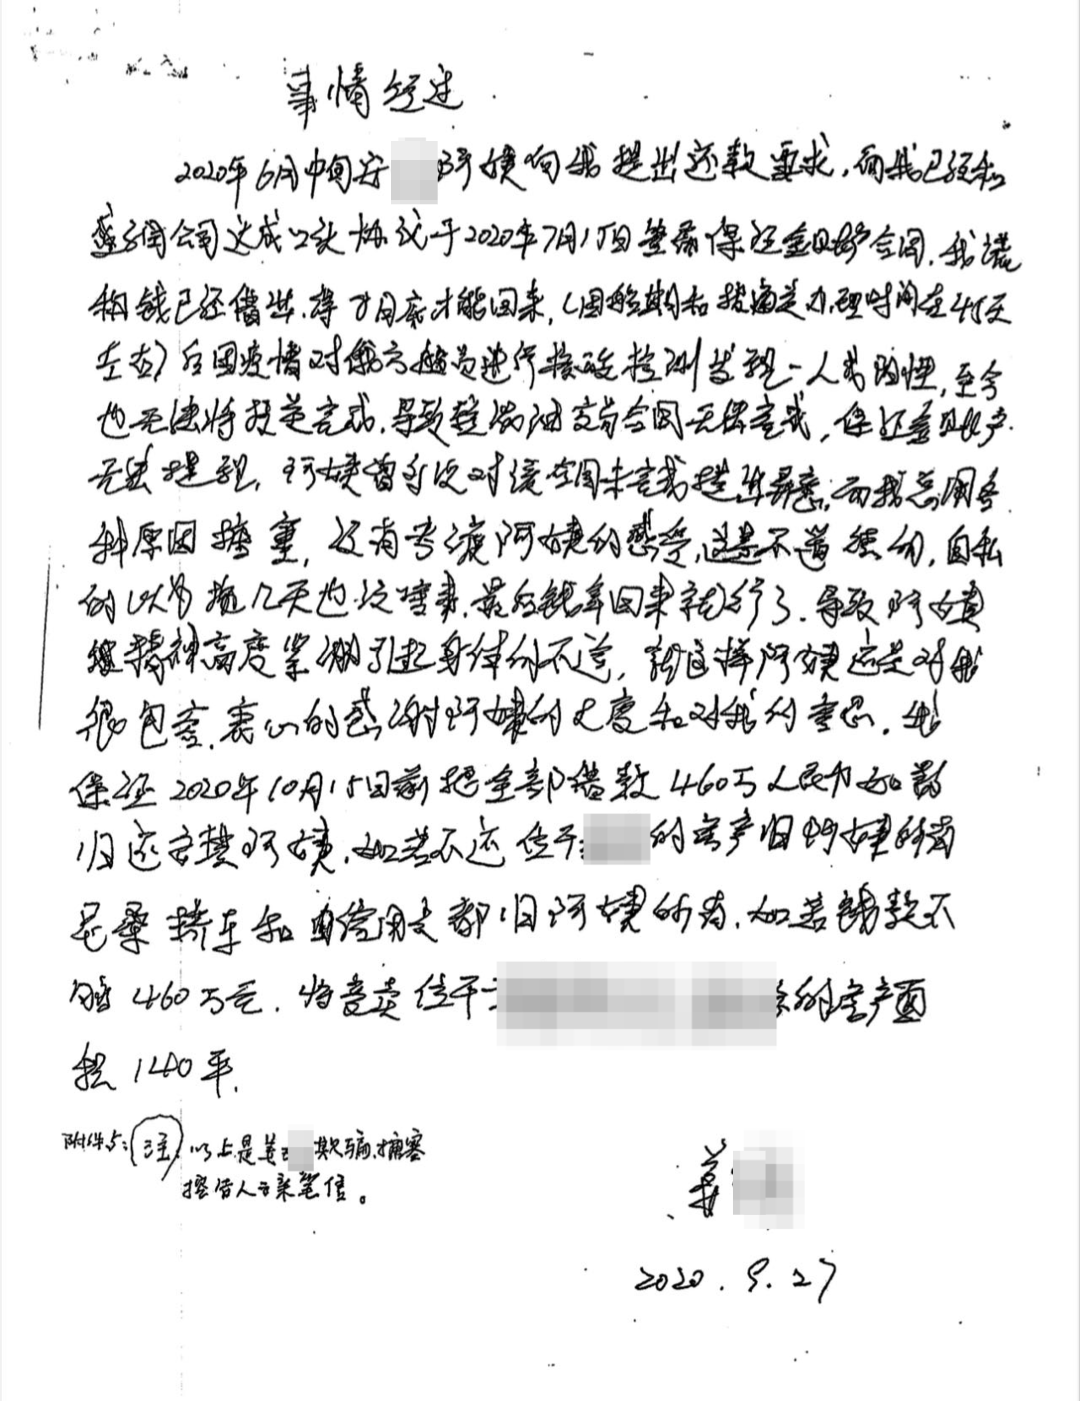 事情经过
2020年6月中间安 阿姨向我提出还款要求,而我已经和
公司达成口头协议于2020年7月15日签俄保还金贝炉合同,我谎
称钱已还借出,得8月底才能回来,(因船期和报通关办理时间在45天
左右)后因疫情对俄方船员进行核酸检测发现一人成阳性,至今
也无法将报关完成,导致 油交易合同无法完成,保证
无法提现,阿姨曾多次对该合同未完成提出异意,而我总用各
种原因搪塞,没有考虑阿姨的感受,这是不道德的,自私
的以为拖几天也没啥事,最后钱拿回来就行了,导致阿姨
精神高度紧绷引起身体的不适,就这样阿姨还是对我
很包容,衷心的感谢阿姨的大度和对我的重恩,我
保证2020年10月15日前把全部借款460万人民币如数
归还安 阿姨,如若不还位于 的房产归阿姨所有
尼桑轿车和 都归阿姨所有,如若钱款不
够460万元,将变卖位于 的房产面
积140平.
附件5:(注)以上是姜 欺骗、搪塞
控告人 亲笔信。
姜
2020.9.27